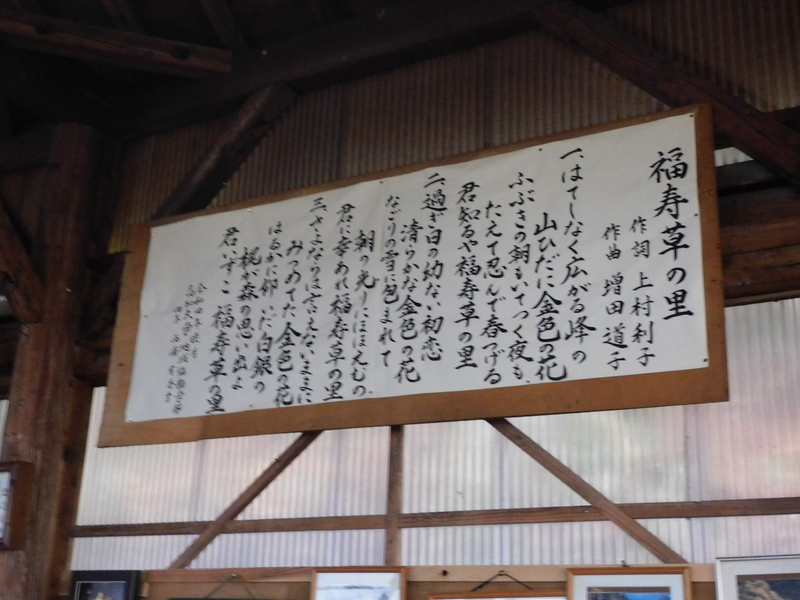 福寿草の里
作詞 上村利子
作曲 増田道子
一、はてしなく広がる峰の
山ひだに金色の花
ふぶきの朝もいてつく夜も
たえて忍んで春つげる
君知るや福寿草の里
二、過ぎ日の幼ない初恋
清らかな金色の花
なごりの雪に包まれて
朝の光りにほほえむの
君に幸あれ福寿草の里
三、さよならは言えないままに
みつめてた金色の花
はるかに仰いだ白銀の
梶が森の思い出よ
君いずこ 福寿草の里
令和四年
高知大学地域協働学部